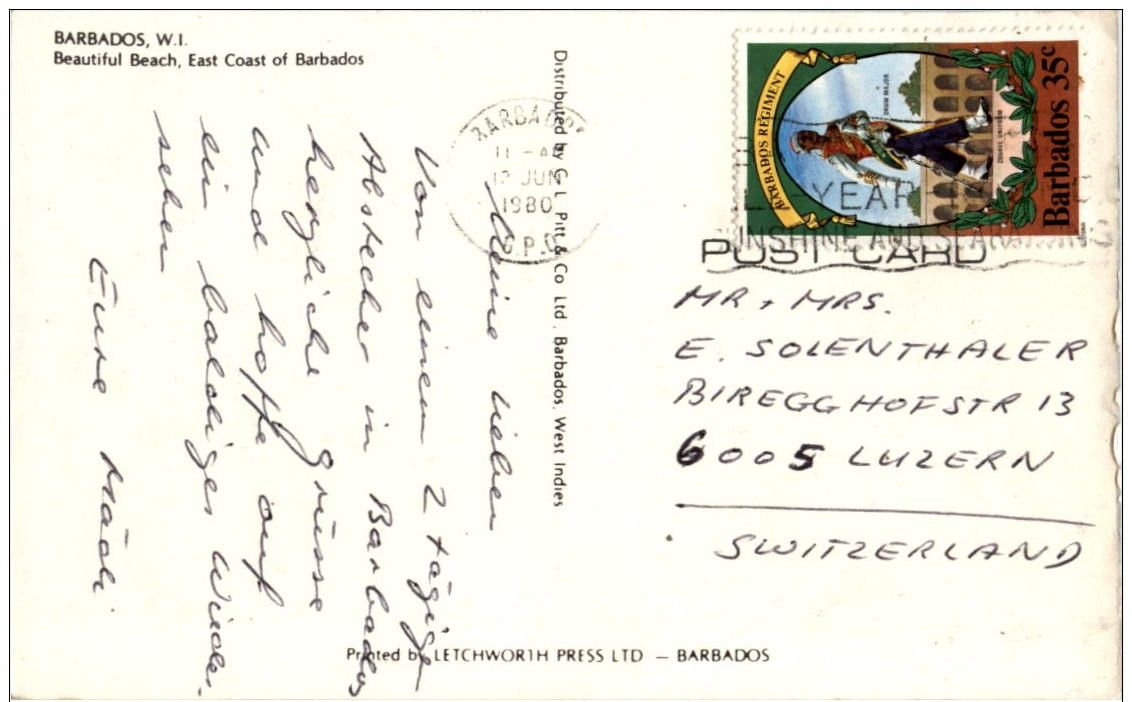 BARBADOS, W.I.
Beautiful Beach, East Coast of Barbados
Meine lieben
Von einem 2 tägigen
Abstecher in Barbados
herzliche Grüsse
und hoffe auf
ein baldiges Wieder-
sehen
Eure Mädi
Distributed by G. L. Pitt & Co Ltd. Barbados, West Indies
BARBADOS
11 - AM
12 JUN
1980
G.P.O.
BARBADOS REGIMENT
DRUM MAJOR
ZOUAVE UNIFORM
Barbados 35c
YEAR
SUNSHINE AND SEA
POST CARD
MR + MRS.
E. SOLENTHALER
BIREGGHOFSTR 13
6005 LUZERN
SWITZERLAND
Printed by LETCHWORTH PRESS LTD — BARBADOS